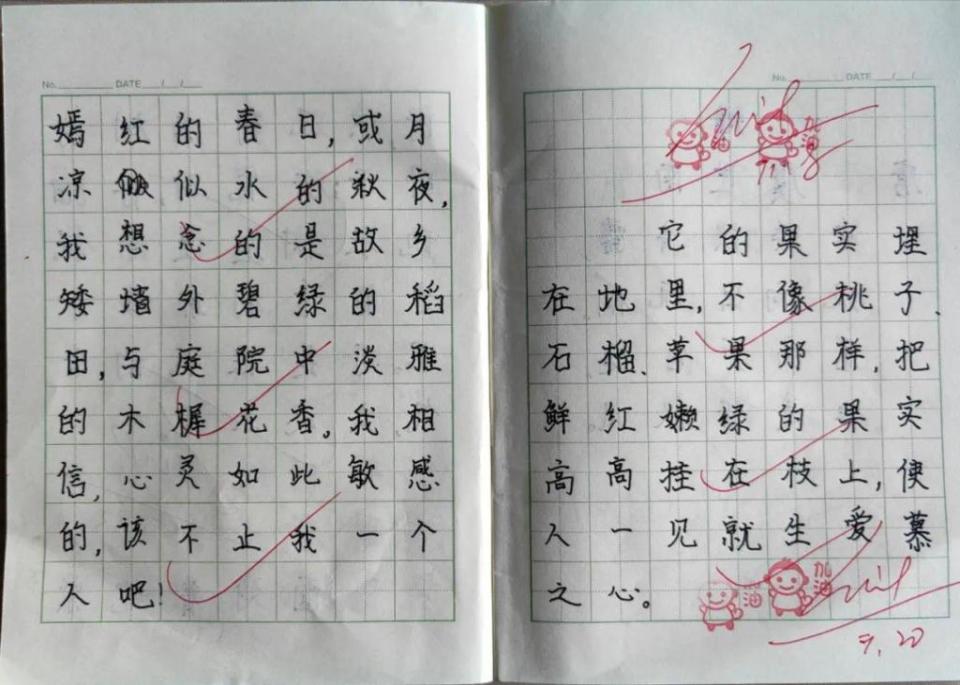 No. DATE / /
嫣红的春日,或月
凉似水的秋夜,
我想念的是故乡
矮墙外碧绿的稻
田,与庭院中淡雅
的木樨花香。我相
信,心灵如此敏感
的,该不止我一个
人吧!
No. DATE / /
加油
加油
它的果实埋
在地里,不像桃子、
石榴、草果那样,把
鲜红嫩绿的果实
高高挂在枝上,使
人一见就生爱慕
之心。
加油
加油